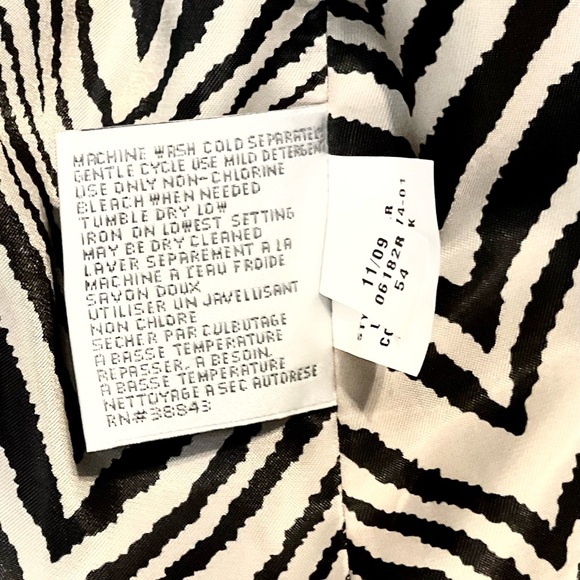 MACHINE WASH COLD SEPARATELY
GENTLE CYCLE USE MILD DETERGENT
USE ONLY NON-CHLORINE
BLEACH WHEN NEEDED
TUMBLE DRY LOW
IRON ON LOWEST SETTING
MAY BE DRY CLEANED
LAVER SEPAREMENT A LA
MACHINE A L'EAU FROIDE
SAVON DOUX
UTILISER UN JAVELLISANT
NON CHLORE
SECHER PAR CULBUTAGE
A BASSE TEMPERATURE
REPASSER, A BESOIN,
A BASSE TEMPERATURE
NETTOYAGE A SEC AUTORESE
RN#38843
11/09 R
STY L 06182R 74-01
CC 54 K